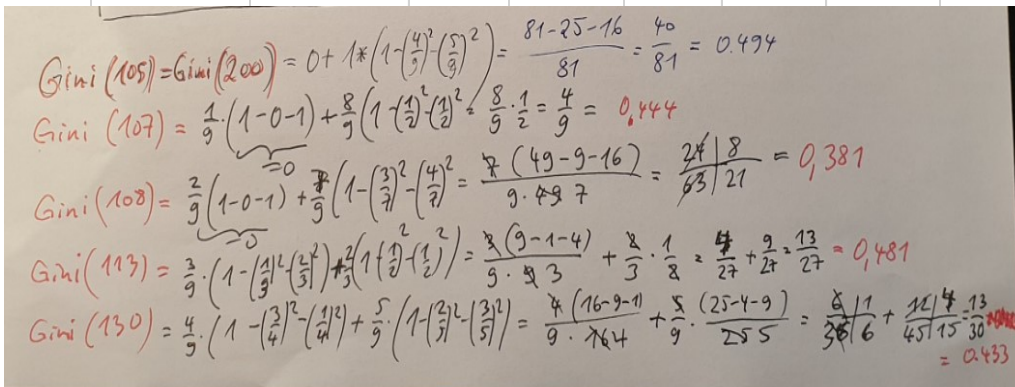 Gini(105)=Gini(200) = 0 + 1*(1-(4/9)²-(5/9)²) = (81-25-16)/81 = 40/81 = 0.494
Gini(107) = 1/9·(1-0-1) + 8/9(1-(1/2)²-(1/2)² = 8/9·1/2 = 4/9 = 0,444
=0
Gini(108) = 2/9(1-0-1) + 7/9(1-(3/7)²-(4/7)² = 7(49-9-16)/(9·49 7) = 24|8/63|21 = 0,381
=0
Gini(113) = 3/9·(1-(1/3)²-(2/3)²) + 2/3(1-(1/2)²-(1/2)²) = 3(9-1-4)/(9·9 3) + 2/3·1/8 = 4/27 + 9/27 = 13/27 = 0,481
Gini(130) = 4/9·(1-(3/4)²-(1/4)²) + 5/9·(1-(2/5)²-(3/5)²) = 4(16-9-1)/(9·16 4) + 5/9·(25-4-9)/(25 5) = 6|1/36|6 + 12|4/45|15 = 13/30
= 0.433